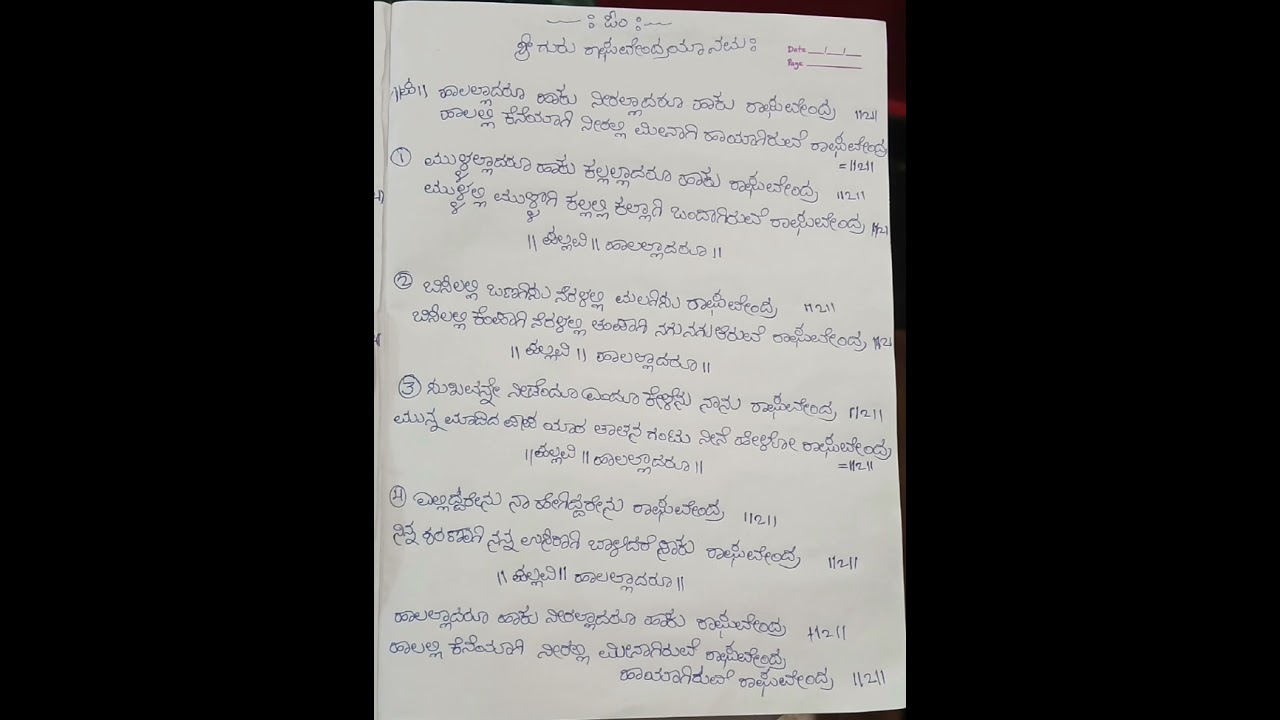 —: ಓಂ :—
ಶ್ರೀ ಗುರು ರಾಘವೇಂದ್ರಯಾ ನಮಃ
Date __/__/__
Page ______
||ಪ|| ಹಾಲಲ್ಲಾದರೂ ಹಾಕು ನೀರಲ್ಲಾದರೂ ಹಾಕು ರಾಘವೇಂದ್ರ ||2||
ಹಾಲಲ್ಲಿ ಕೆನೆಯಾಗಿ ನೀರಲ್ಲಿ ಮೀನಾಗಿ ಹಾಯಾಗಿರುವೆ ರಾಘವೇಂದ್ರ
=||2||
① ಮುಳ್ಳಲ್ಲಾದರೂ ಹಾಕು ಕಲ್ಲಲ್ಲಾದರೂ ಹಾಕು ರಾಘವೇಂದ್ರ ||2||
ಮುಳ್ಳಲ್ಲಿ ಮುಳ್ಳಾಗಿ ಕಲ್ಲಲ್ಲಿ ಕಲ್ಲಾಗಿ ಒಂದಾಗಿರುವೆ ರಾಘವೇಂದ್ರ ||2|
|| ಪಲ್ಲವಿ || ಹಾಲಲ್ಲಾದರೂ ||
② ಬಿಸಿಲಲ್ಲಿ ಒಣಗಿಸು ನೆರಳಲ್ಲಿ ಮಲಗಿಸು ರಾಘವೇಂದ್ರ ||2||
ಬಿಸಿಲಲ್ಲಿ ಕೆಂಪಾಗಿ ನೆರಳಲ್ಲಿ ತಂಪಾಗಿ ನಗುನಗುತಿರುವೆ ರಾಘವೇಂದ್ರ ||2|
|| ಪಲ್ಲವಿ || ಹಾಲಲ್ಲಾದರೂ ||
③ ಸುಖವನ್ನೇ ನೀಡೆಂದೂ ಎಂದೂ ಕೇಳೆನು ನಾನು ರಾಘವೇಂದ್ರ ||2||
ಮುನ್ನ ಮಾಡಿದ ಪಾಪ ಯಾರ ತಾತನ ಗಂಟು ನೀನೆ ಹೇಳೋ ರಾಘವೇಂದ್ರ
=||2||
|| ಪಲ್ಲವಿ || ಹಾಲಲ್ಲಾದರೂ ||
④ ಎಲ್ಲಿದ್ದರೇನು ನಾ ಹೇಗಿದ್ದರೇನು ರಾಘವೇಂದ್ರ ||2||
ನಿನ್ನ ಶರಣಾಗಿ ನನ್ನ ಉಸಿರಾಗಿ ಬಾಳಿದರೆ ಸಾಕು ರಾಘವೇಂದ್ರ ||2||
|| ಪಲ್ಲವಿ || ಹಾಲಲ್ಲಾದರೂ ||
ಹಾಲಲ್ಲಾದರೂ ಹಾಕು ನೀರಲ್ಲಾದರೂ ಹಾಕು ರಾಘವೇಂದ್ರ ||2||
ಹಾಲಲ್ಲಿ ಕೆನೆಯಾಗಿ ನೀರಲ್ಲಿ ಮೀನಾಗಿರುವೆ ರಾಘವೇಂದ್ರ
ಹಾಯಾಗಿರುವೆ ರಾಘವೇಂದ್ರ ||2||